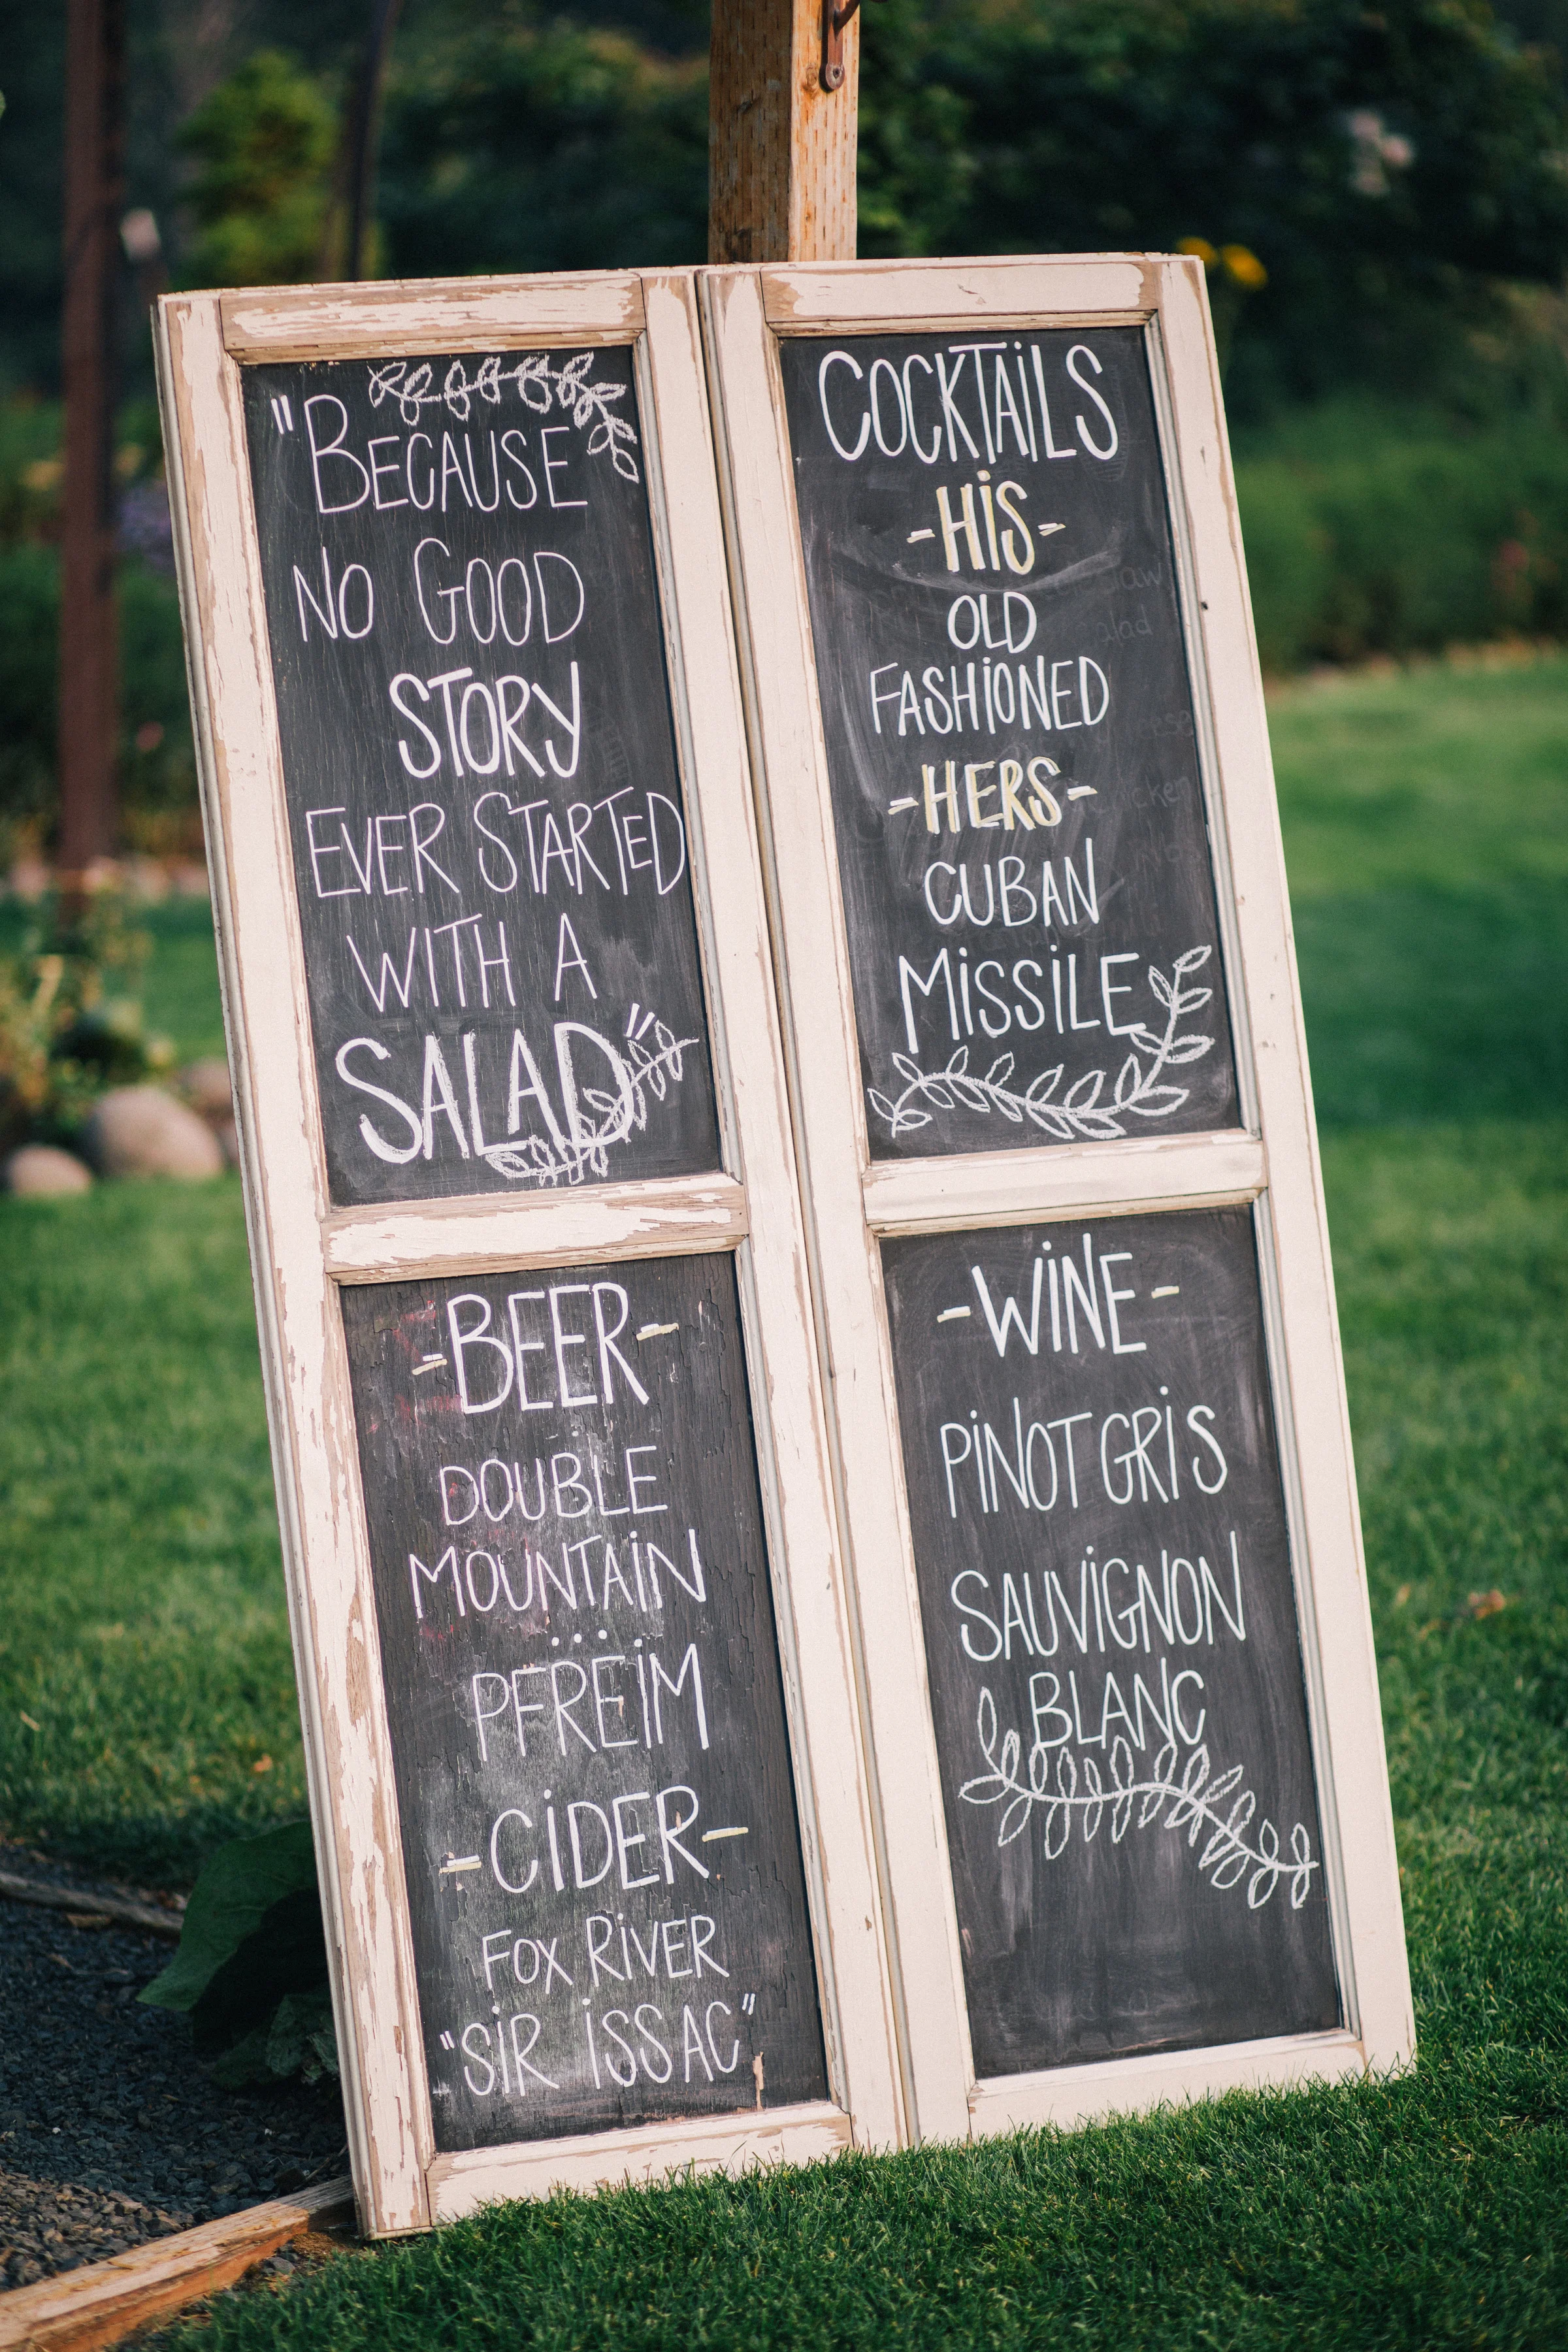 "BECAUSE
NO GOOD
STORY
EVER STARTED
WITH A
SALAD"
-BEER-
DOUBLE
MOUNTAIN
...
PFREIM
-CIDER-
FOX RIVER
"SIR ISSAC"
COCKTAILS
-HIS-
OLD
FASHIONED
-HERS-
CUBAN
MISSILE
-WINE-
PINOT GRIS
SAUVIGNON
BLANC